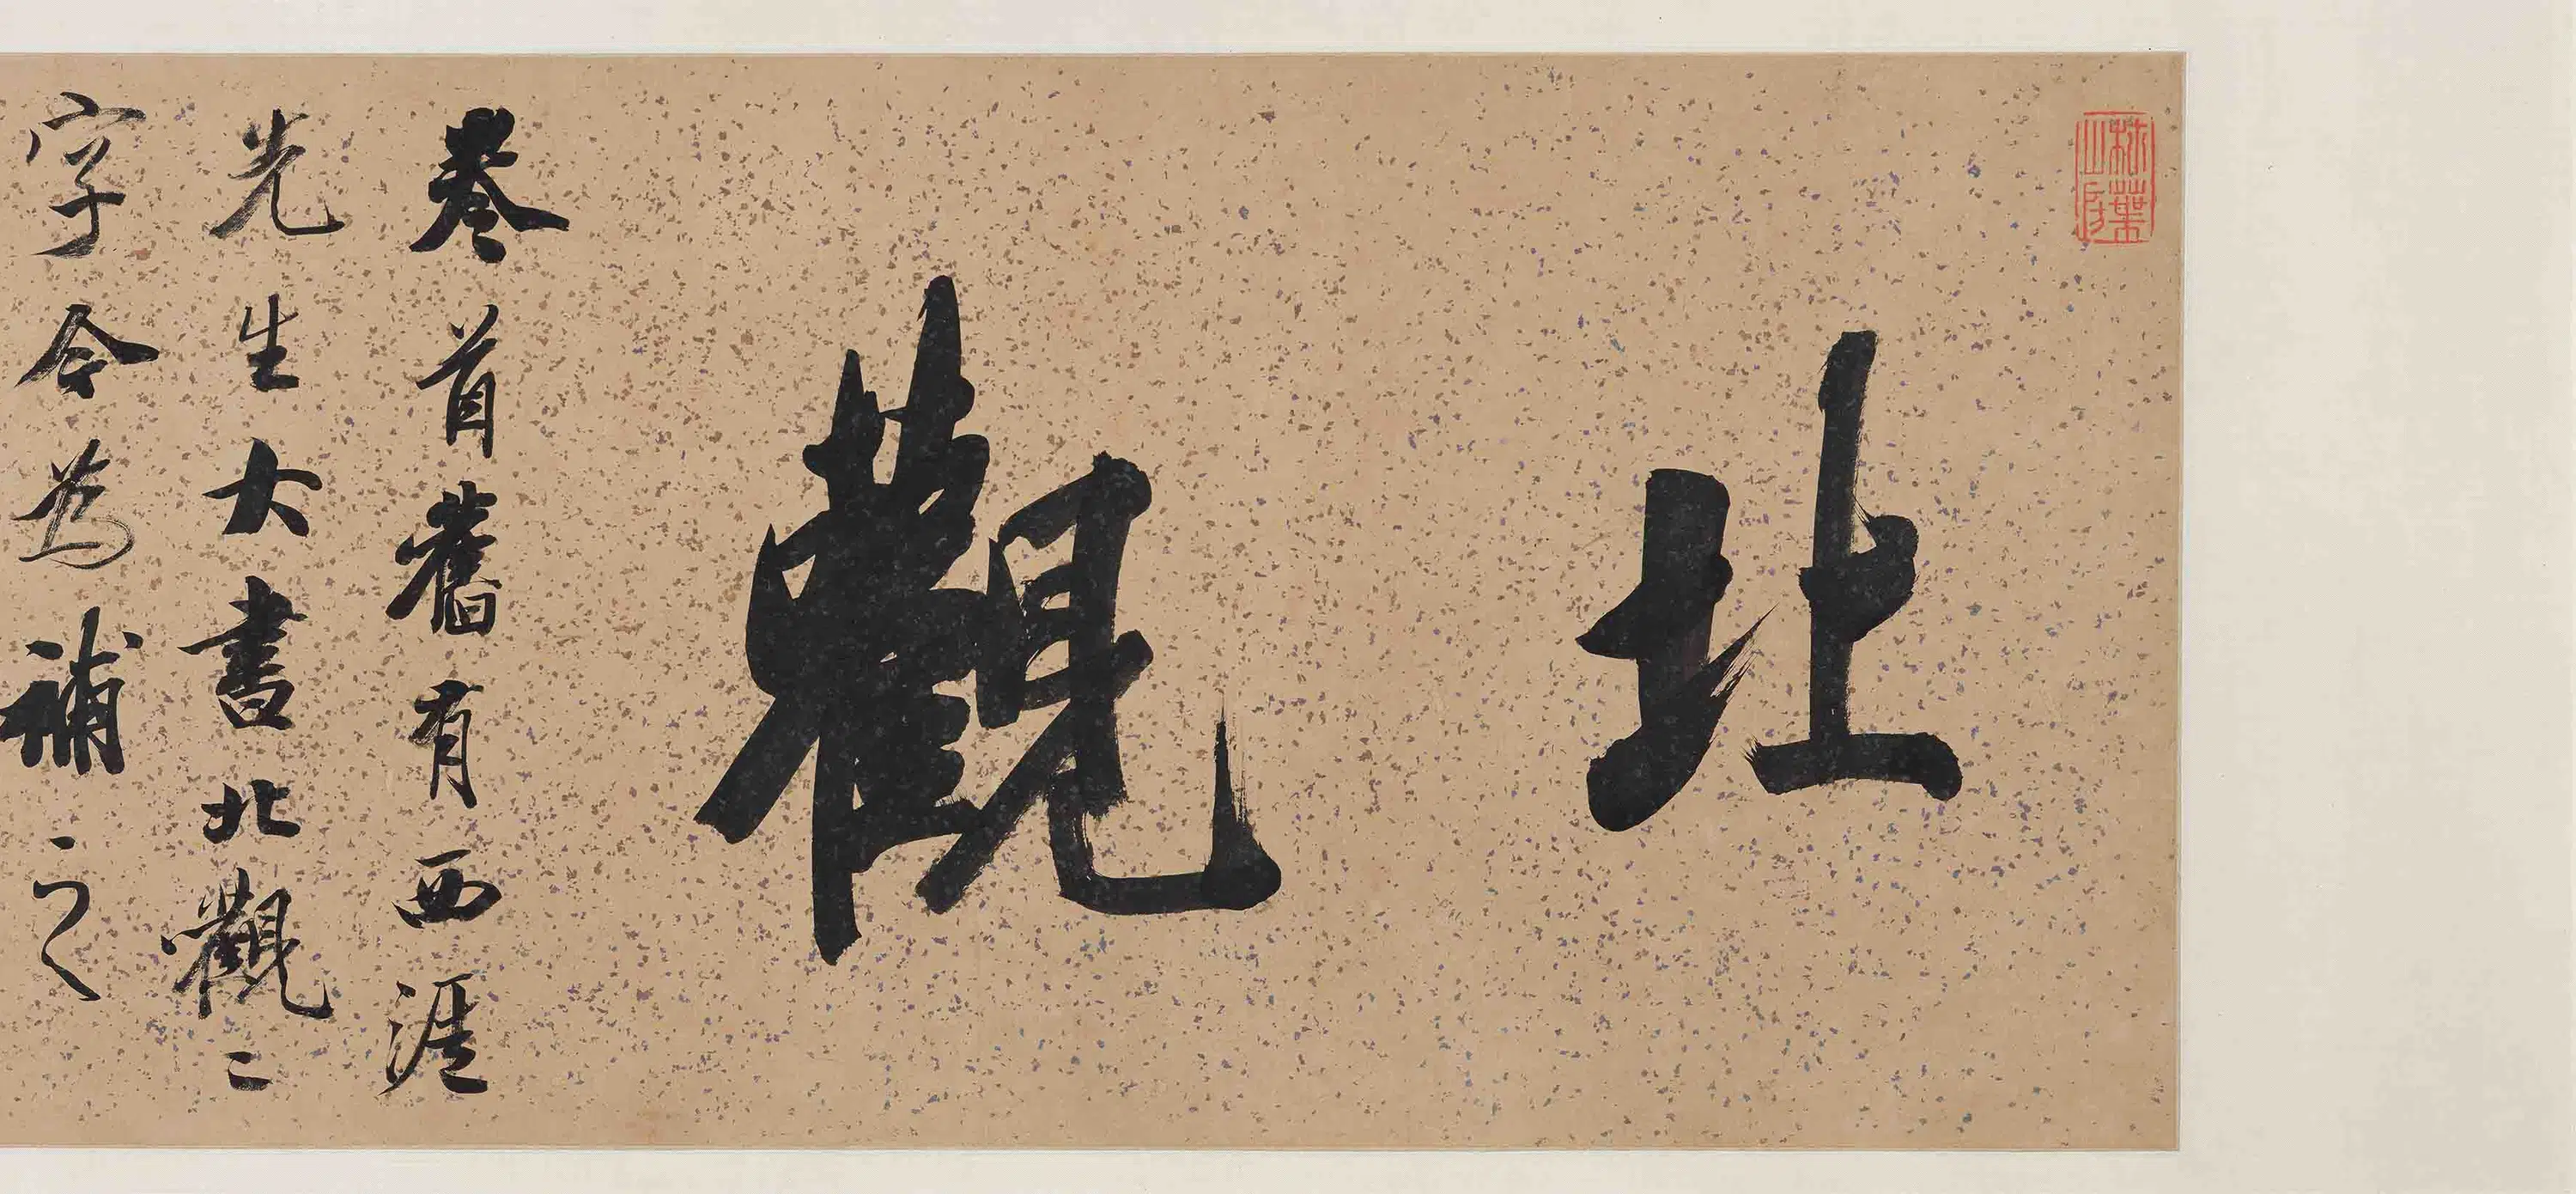 北觀
卷首舊有西涯
先生大書北觀二
字今爲補之
秋葉
山房